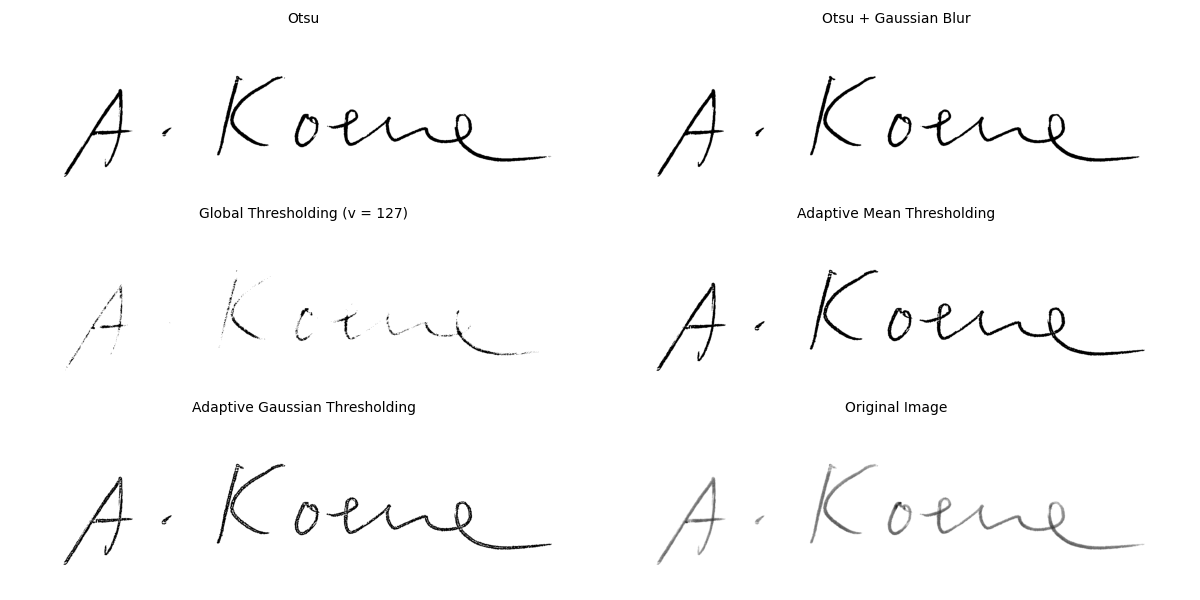 Otsu
A. Koene
Otsu + Gaussian Blur
A. Koene
Global Thresholding (v = 127)
A. Koene
Adaptive Mean Thresholding
A. Koene
Adaptive Gaussian Thresholding
A. Koene
Original Image
A. Koene